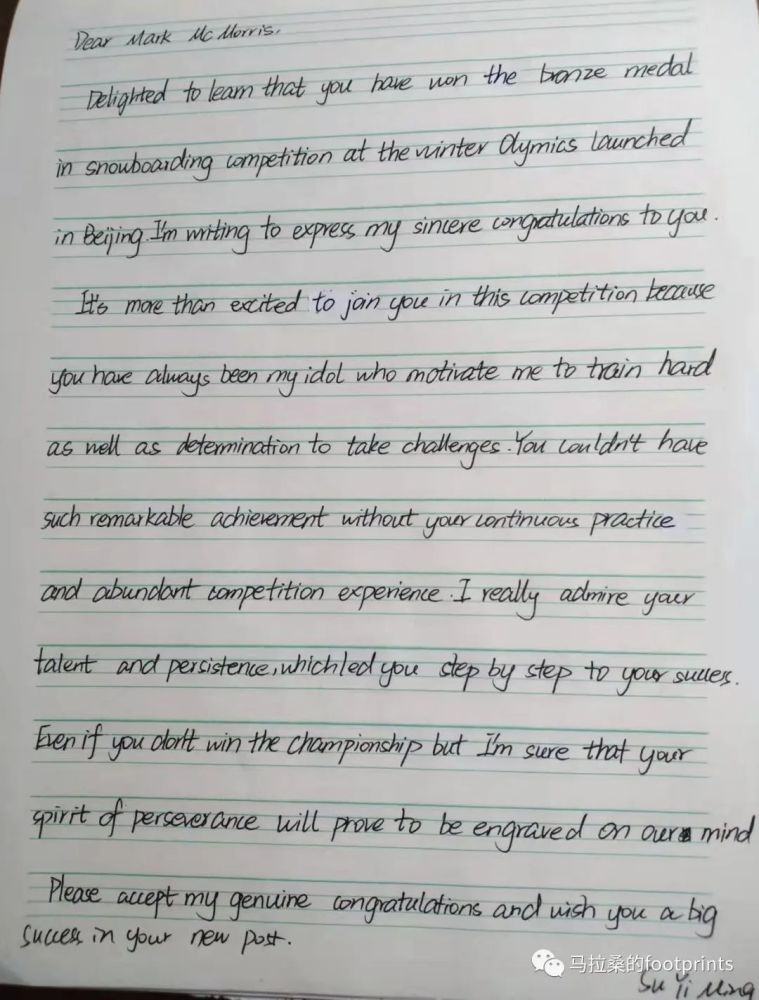 Dear Mark McMorris.
Delighted to learn that you have won the bronze medal
in snowboarding competition at the winter Olymics launched
in Beijing. I'm writing to express my sincere congratulations to you.
It's more than excited to join you in this competition because
you have always been my idol who motivate me to train hard
as well as determination to take challenges. You couldn't have
such remarkable achievement without your continuous practice
and abundant competition experience. I really admire your
talent and persistence, which led you step by step to your success.
Even if you don't win the championship but I'm sure that your
spirit of perseverance will prove to be engraved on our mind
Please accept my genuine congratulations and wish you a big
success in your new post.
马拉桑的footprints
Su Yi Ming